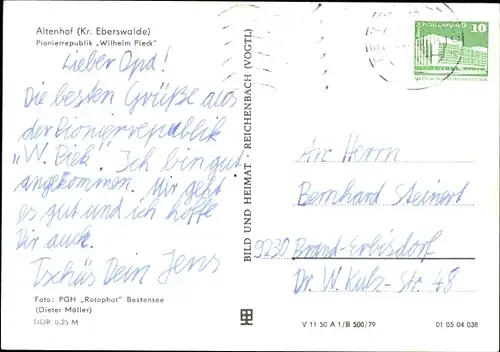 Altenhof (Kr. Eberswalde)
Pionierrepublik „Wilhelm Pieck"
Lieber Opa!
Die besten Grüße aus
der Pionierrepublik
„W. Piek". Ich bin gut
angekommen. Mir geht
es gut und ich hoffe
Dir auch.
Tschüs Dein Jens
Foto: PGH „Rotophot" Bestensee
(Dieter Möller)
DDR 0,25 M
BILD UND HEIMAT · REICHENBACH (VOGTL)
10
An Herrn
Bernhard Steinert
9230 Brand-Erbisdorf
Dr. W. Külz-Str. 48
V 11 50 A 1/B 500/79
01 05 04 038